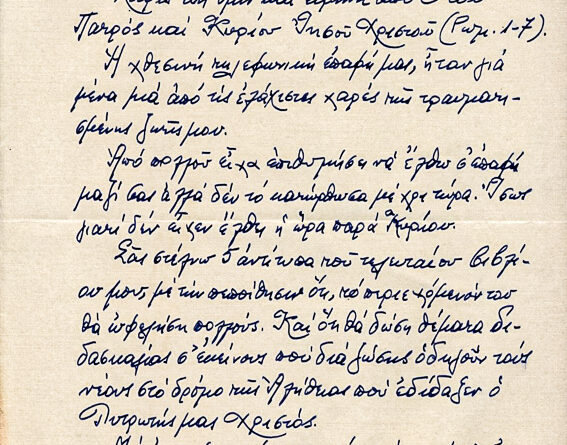 Πατρός καί Κυρίου Ἰησοῦ Χριστοῦ (Ρωμ. 1-7).
Ἡ χθεσινή τηλεφωνική ἐπαφή μας, ἦταν γιά
μένα μιά ἀπό τίς ἐλάχιστες χαρές τῆς τραυματι-
σμένης ζωῆς μου.
Ἀπό πολλοῦ εἶχα ἐπιθυμήσει νά ἔλθω σ' ἐπαφή
μαζί σας ἀλλά δέν τό κατώρθωσα μέχρι τώρα. Ἴσως
γιατί δέν εἶχεν ἔλθει ἡ ὥρα παρά Κυρίου.
Σᾶς στέλνω 5 ἀντίτυπα τοῦ τελευταίου βιβλί-
ου μου, μέ τήν πεποίθησιν ὅτι, τό περιεχόμενόν του
θά ὠφελήση πολλούς. Καί ὅτι θά δώση θέματα δι-
δασκαλίας σ' ἐκείνους πού διά ζώσης ὁδηγοῦν τούς
νέους στό δρόμο τῆς Ἀλήθειας πού ἐδίδαξεν ὁ
Λυτρωτής μας Χριστός.